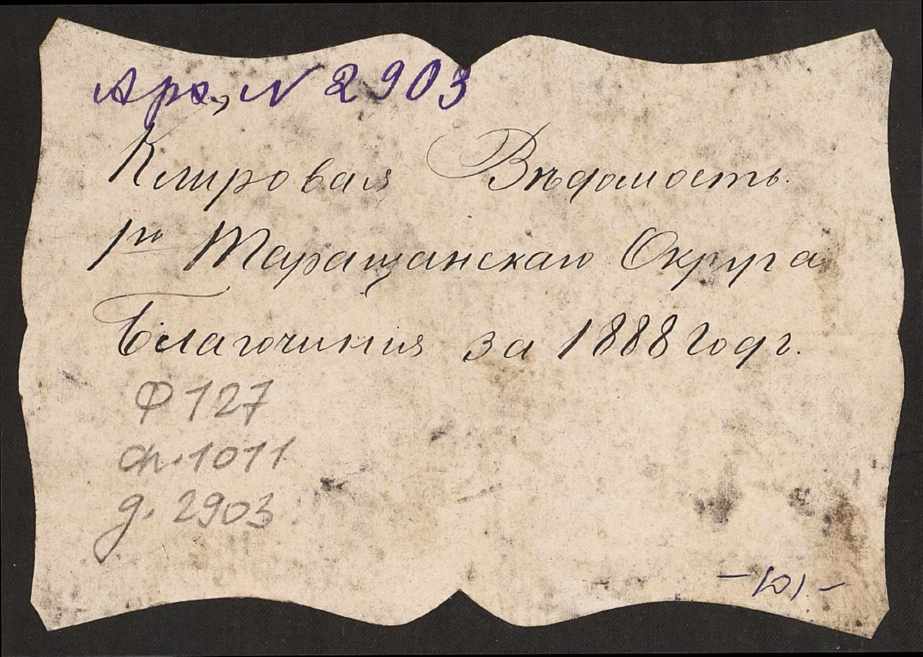 Арх, N 2903
Клировая Вѣдомость
1го Таращанскаго Округа
Благочинія за 1888 годъ.
Ф 127
оп. 1011
д. 2903